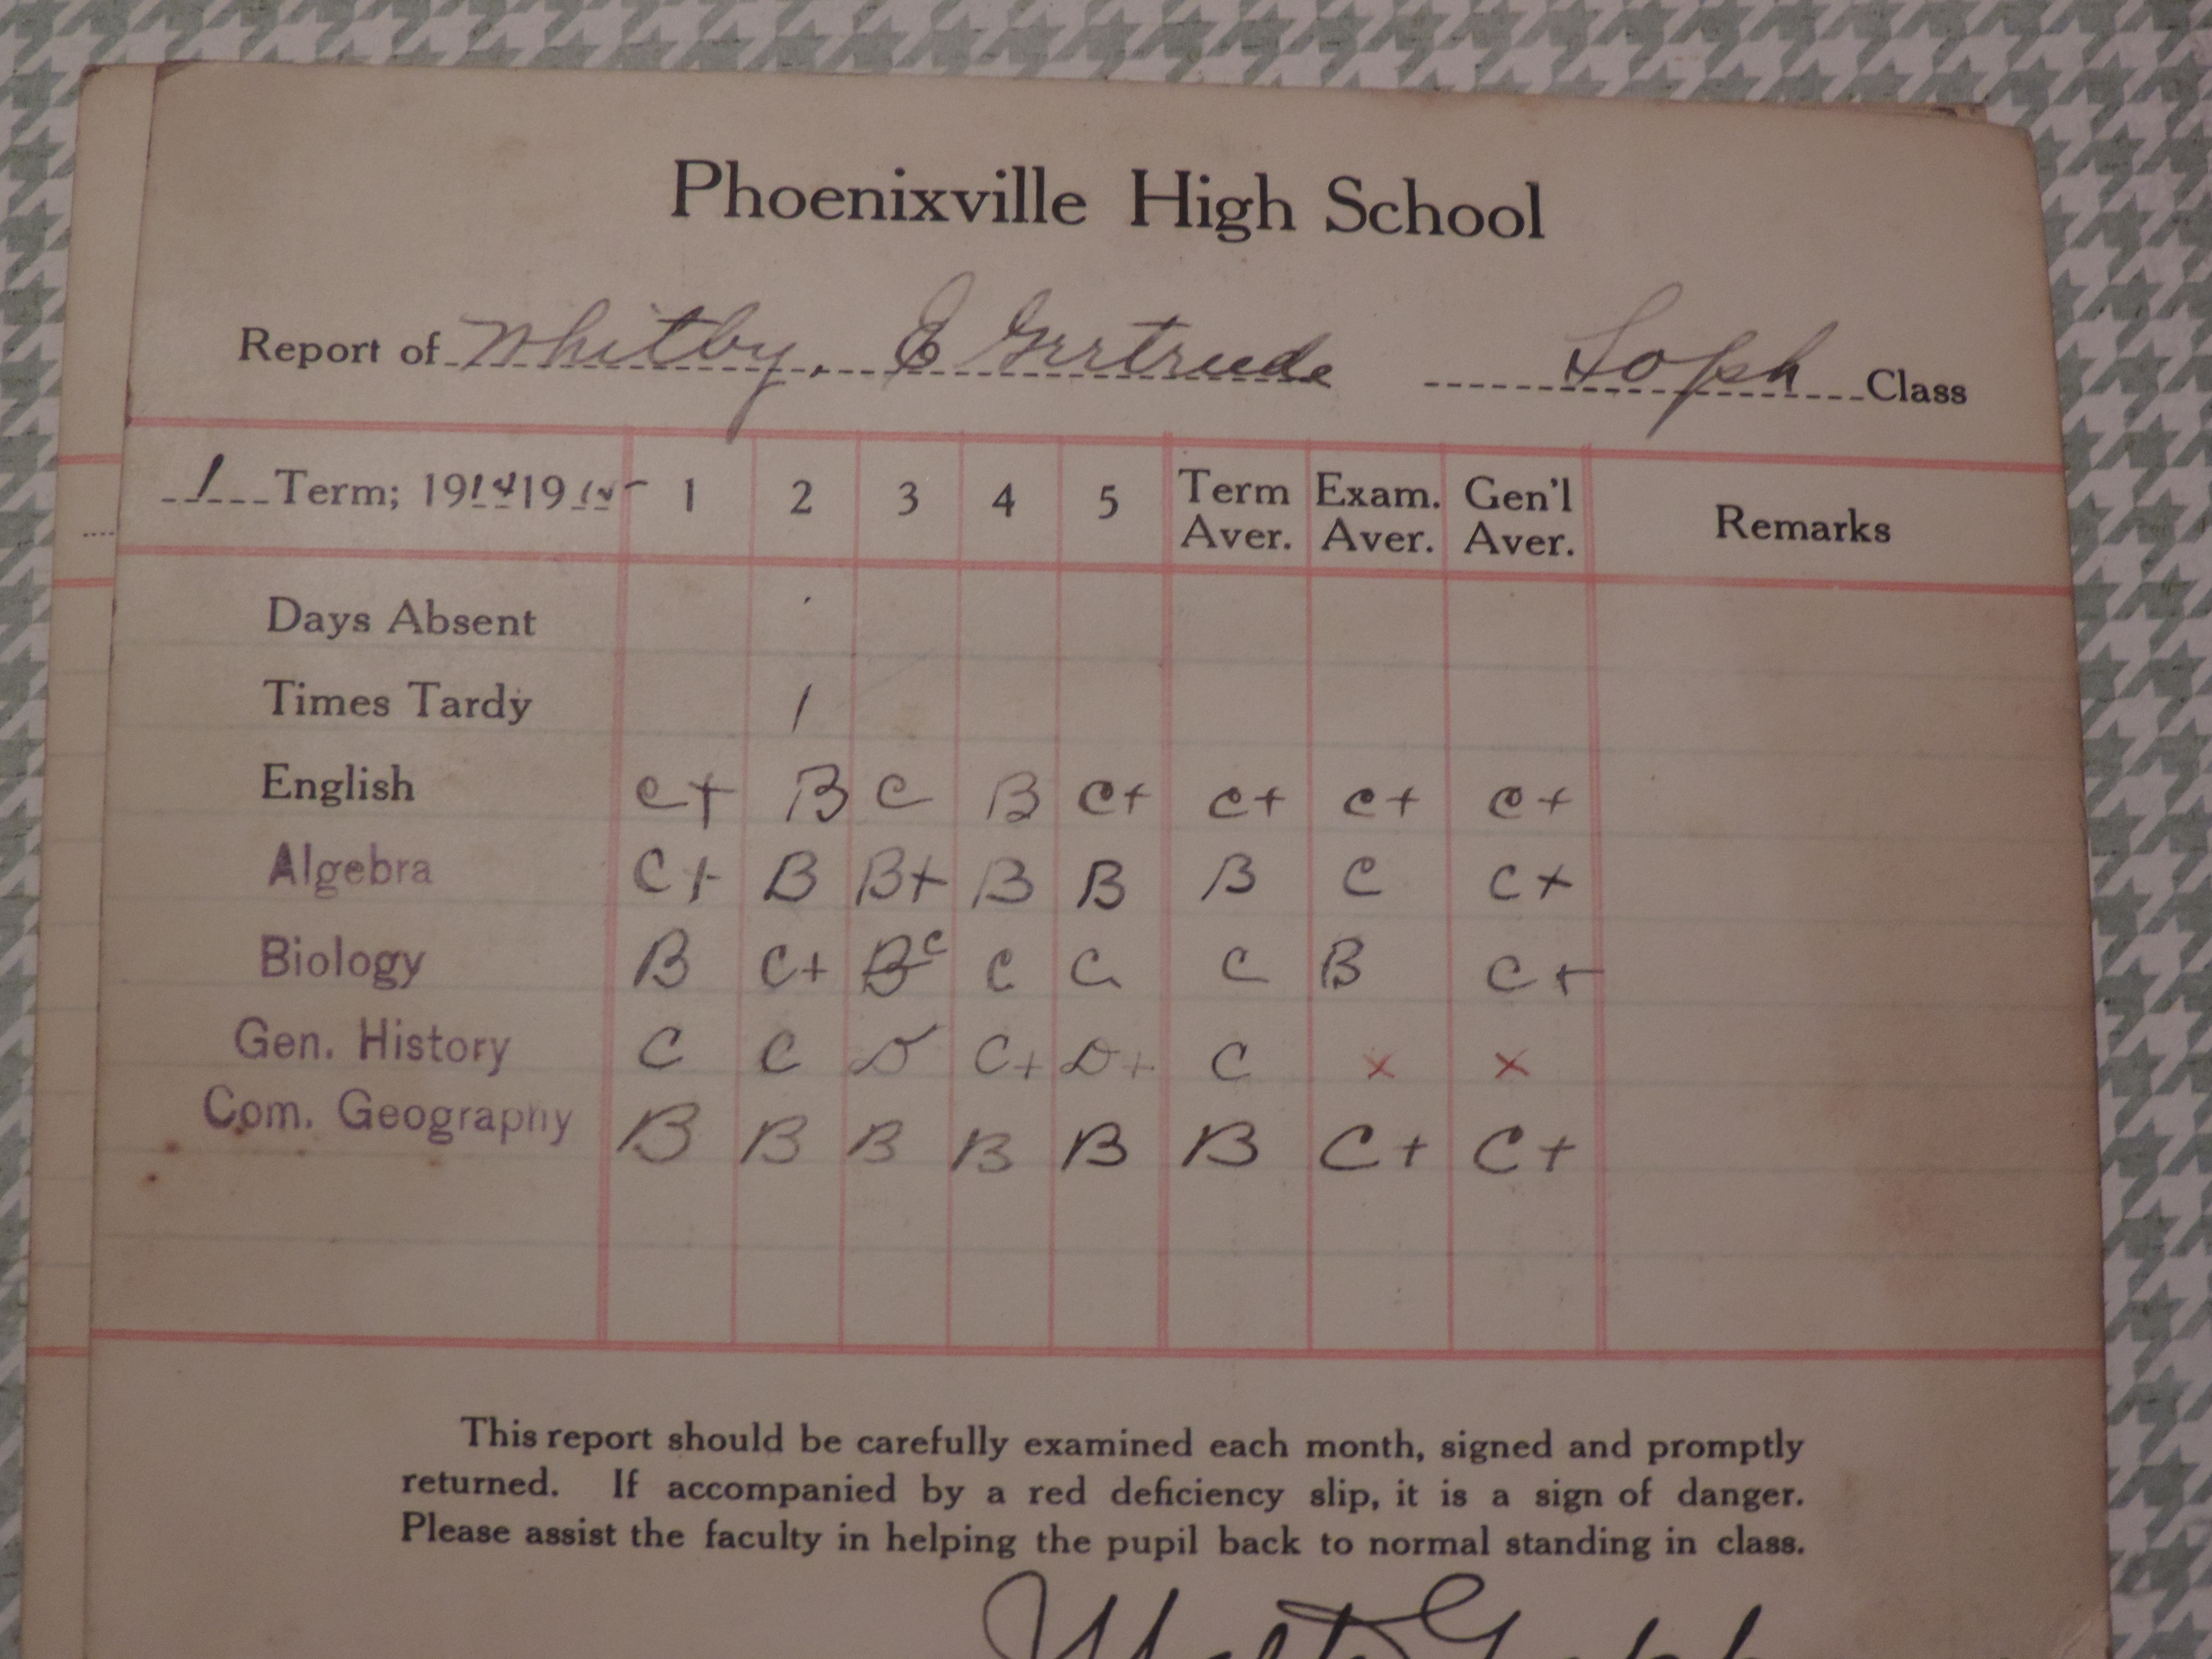 Phoenixville High School
Report of Whitby, E Gertrude Soph Class
1 Term; 1914 1915 1 2 3 4 5 Term Aver. Exam. Aver. Gen'l Aver. Remarks
Days Absent
Times Tardy 1
English C+ B C B C+ C+ C+ C+
Algebra C+ B B+ B B B C C+
Biology B C+ B C C C C B C+
Gen. History C C D C+ D+ C x x
Com. Geography B B B B B B C+ C+
This report should be carefully examined each month, signed and promptly
returned. If accompanied by a red deficiency slip, it is a sign of danger.
Please assist the faculty in helping the pupil back to normal standing in class.